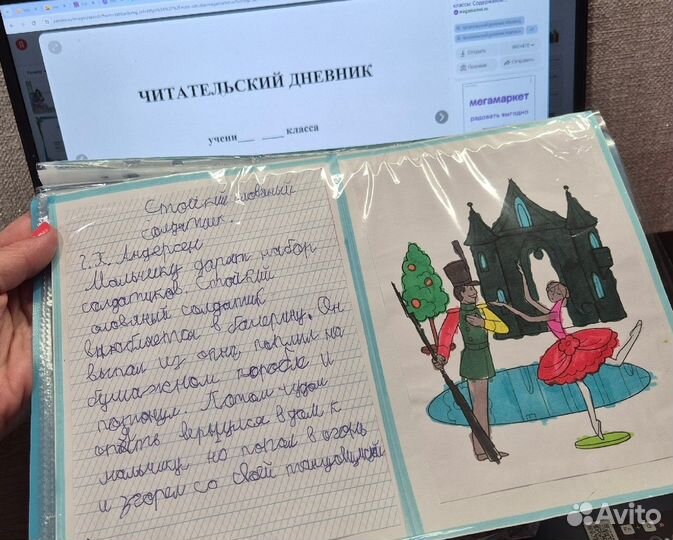 ЧИТАТЕЛЬСКИЙ ДНЕВНИК
учени___ ___ класса
Открыть
Похожие
Отправить
мегамаркет
радовать выгодно
Стойкий оловяный
солдатик.
Г. Х. Андерсен
Мальчику дарят набор
солдатиков. Стойкий
оловяный солдатик
влюбляется в балерину. Он
выпал из окна, поплыл на
бумажном корабле и
потонул. Потом чудом
опять вернулся в дом к
мальчику но попал в огонь
и згорел со своей танцовщицей
Avito